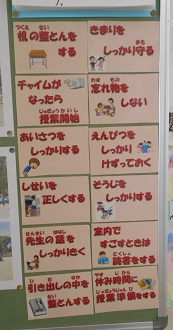 机の整とんを
する
きまりを
しっかり守る
チャイムが
なったら
授業開始
忘れ物を
しない
あいさつを
しっかりする
えんぴつを
しっかり
けずっておく
しせいを
正しくする
そうじを
しっかりする
先生の話を
しっかりきく
室内で
すごすときは
読書をする
引き出しの中を
整とんする
休み時間に
授業準備をする